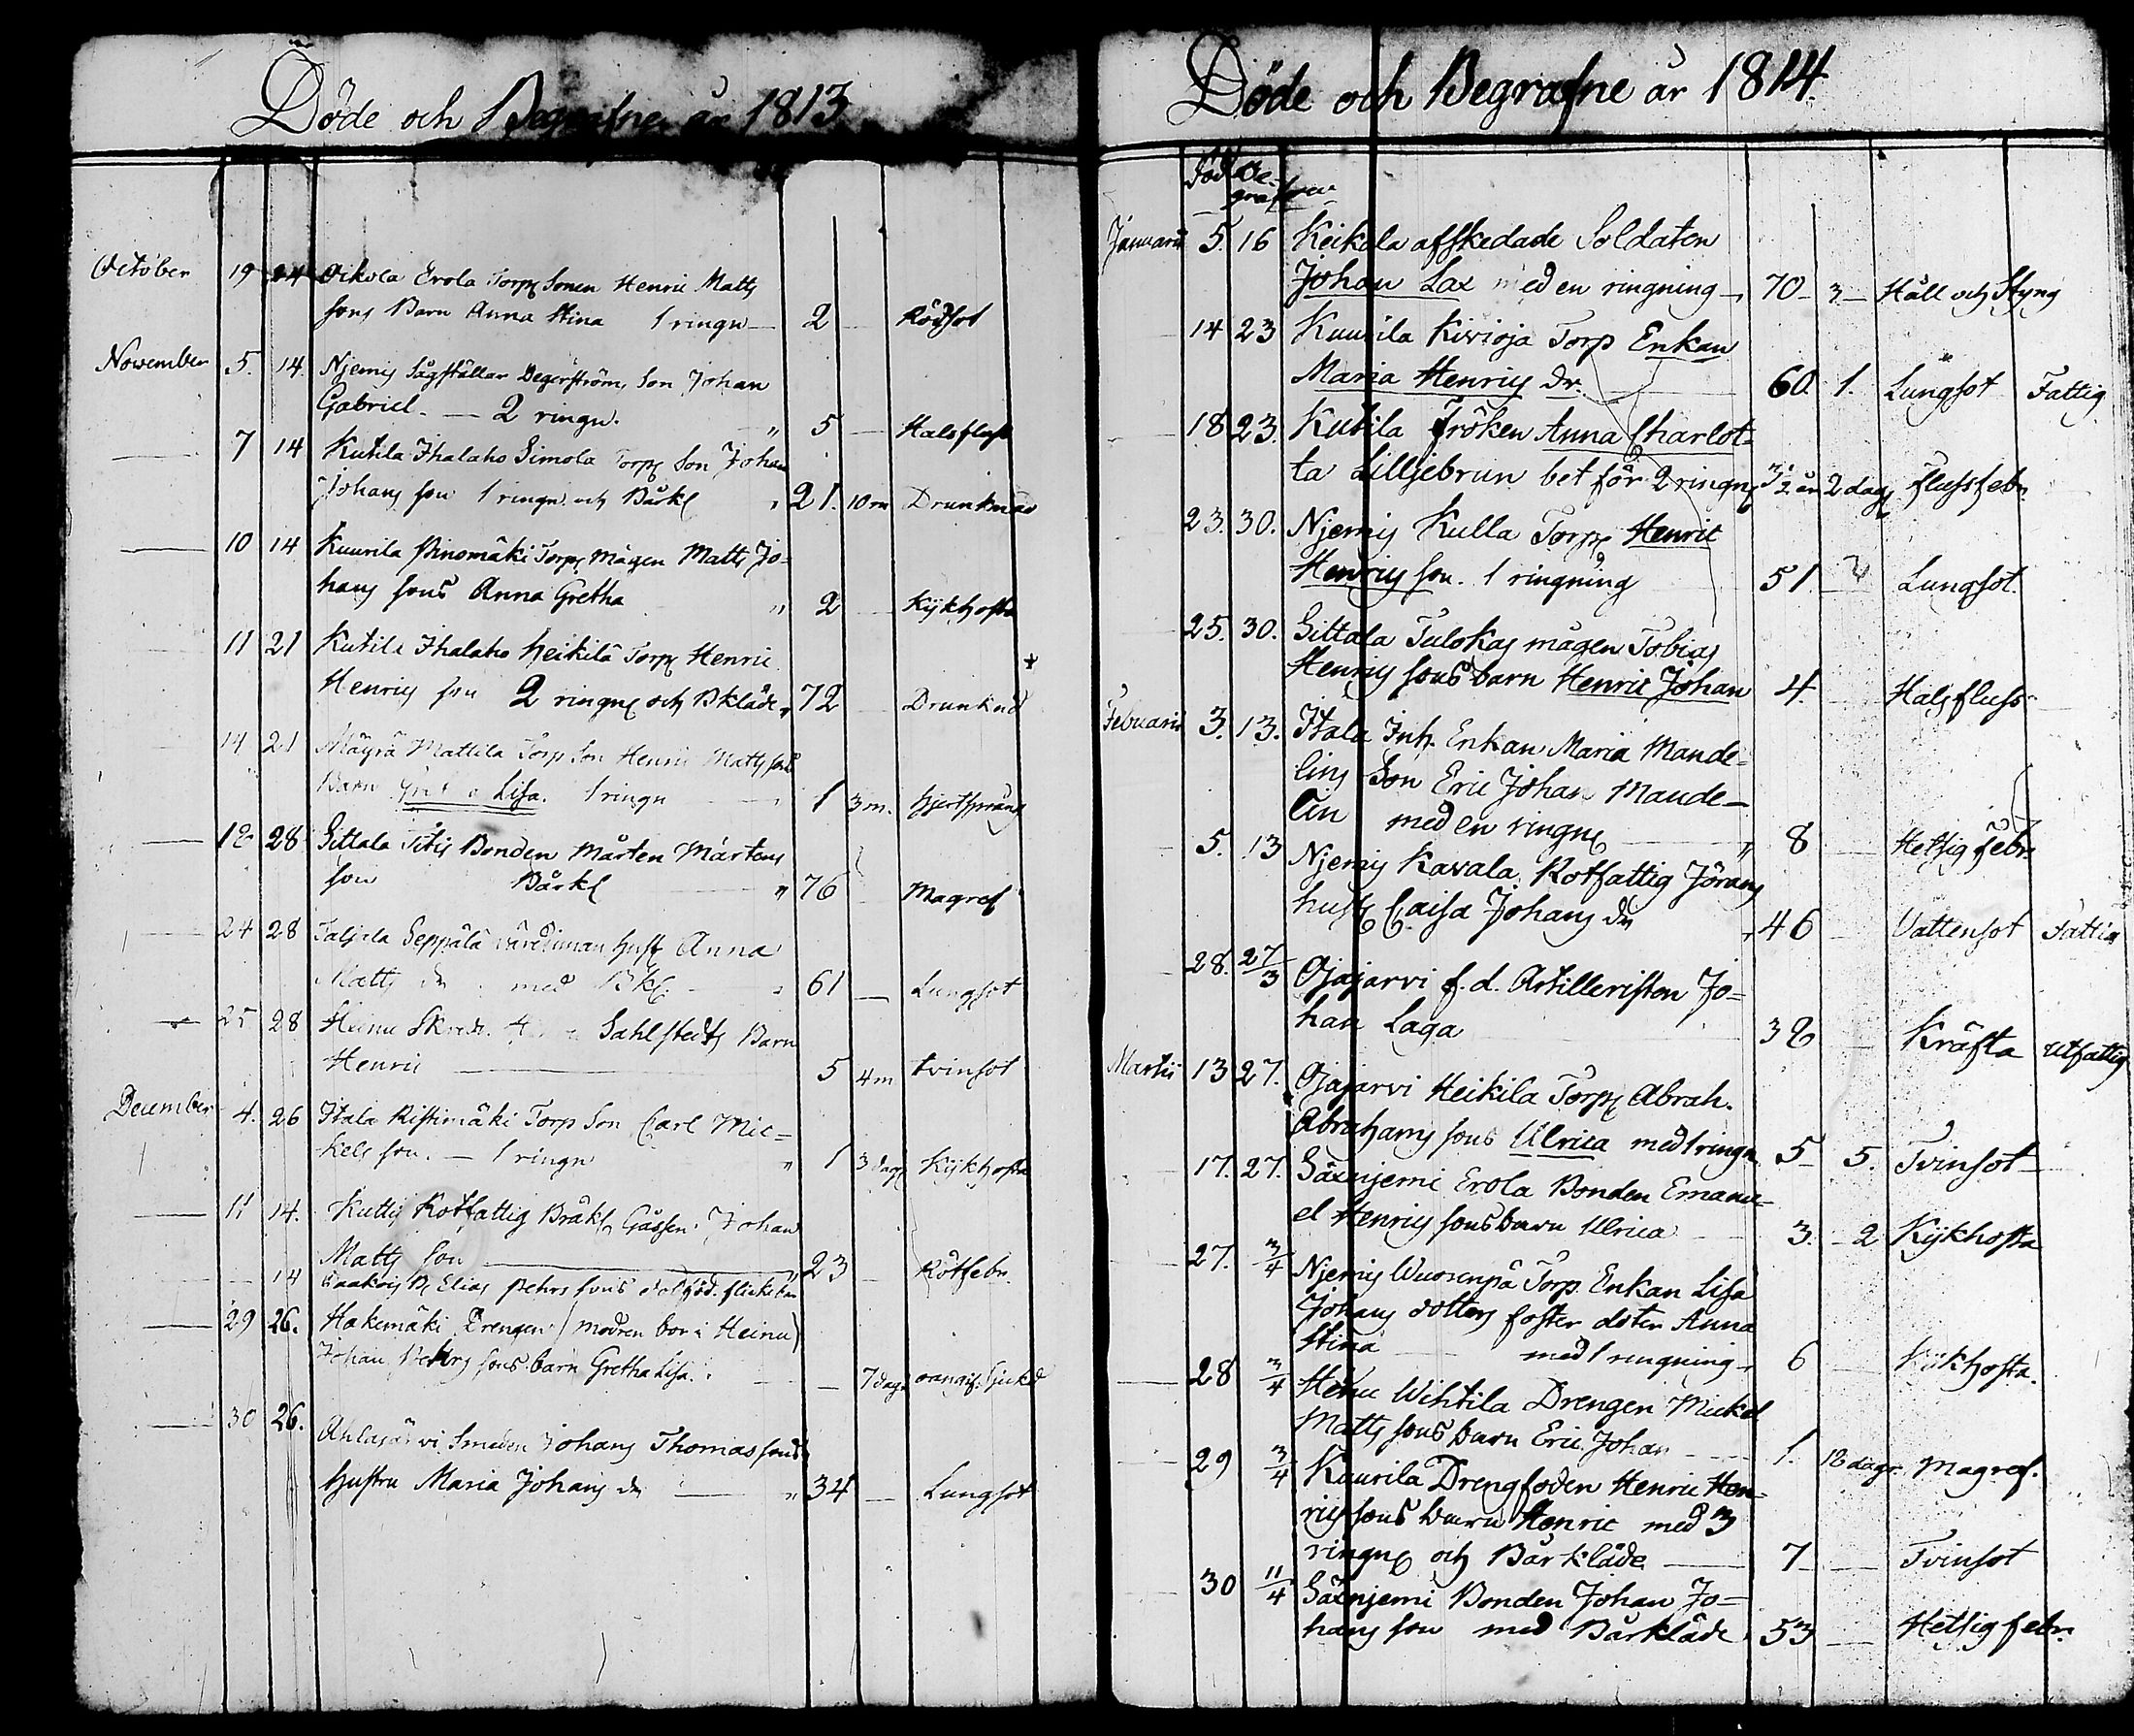 Döde och Begrafne år 1813
October 19 24 Oikola Erola Torp Sonen Henric Matts
sons Barn Anna Stina 1 ringn — 2 — Rödsot
November 5. 14. Njemis Sågställar Degerström, Son Johan
Gabriel. — 2 ringn. " 5 — Halsfluss
— 7 14 Kutila Ihalaho Simola Torp Son Johan
Johans son 1 ringn. och Bårkl 21. 10 m Drunknad
— 10 14 Kuurila Pinomäki Torp Mågen Matts Jo=
hans sons Anna Gretha " 2 — Kijkhosta
11 21 Kutila Ihalaho Heikilä Torp Henric
Henrics son 2 ringn och Bkläde " 72 Drunknad
14 21 Mäyrä Mattila Torp Son Henric Matts sons
Barn Greta Lisa. 1 ringn — 1 3 m. Hjertsprång
— 12 28 Sittala Titis Bonden Mårten Mårtens
son Bårkl " 76 Magref
— 24 28 Taljala Seppälä hust Anna
Matts dr. med Bkl. — 61 — Lungsot
25 28 Heinu Skredd. Sahlstedts Barn
Henric — 5 4 m tvinsot
December 4. 26 Itala Ristimäki Torp Son Carl Mic=
kels son. — 1 ringn " 1 3 dag Kijkhosta
— 11 14. Kuttis Rotfattig Gossen Johan
Matts son — " 23 — Rötfebr.
— 14 Elias Pehrs sons dödföd. flickebarn
— 29 26. Hakemäki Drengen (modren bor i Heinu)
Johan Pehrs sons barn Gretha Lisa. — 7 dag. Sjukd
— 30 26. Ahlajärvi Smeden Johans Thomas sons
hustru Maria Johans dr — " 34 — Lungsot
Döde och Begrafne år 1814.
Död Be-
grafven
Januarii 5. 16 Keikala afskedade Soldaten
Johan Lax med en ringning — 70 — 3 — Håll och Styng
14 23 Kuurila Kivioja Torp Enkan
Maria Henrics dr. 60. 1. Lungsot Fattig
18 23. Kutila Fröken Anna Charlot=
ta Lilljebrun bet för 2 ringn 3 1/2 år 2 dag flussfebr.
23. 30. Njemis Kulla Torp Henric
Henrics son. 1 ringning 51. Lungsot.
25. 30. Sittala Tulokas mågen Tobias
Henrics sons barn Henric Johan 4. Halsfluss
Februarii 3. 13. Itala Inh. Enkan Maria Mande=
lins Son Eric Johan Mande=
lin med en ringn " 8 Hetsig febr.
5. 13 Njemis Kavala Rotfattig Jörans
hust Caisa Johans dr " 46 Vattensot Fattig
28. 27/3 Ojajarvi f.d. Artilleristen Jo=
han Laga 32 Kräfta utfattig
Martii 13 27. Ojajarvi Heikila Torp Abrah.
Abrahams sons Ulrica med 1 ringn. 5 — 5. Tvinsot
17. 27. Säxnjemi Erola Bonden Emanu=
el Henrics sons barn Ulrica 3. — 2 Kijkhosta
27. 3/4 Njemis Wuorenpä Torp. Enkan Lisa
Johans dotters foster doter Anna
Stina — med 1 ringning — 6 Kijkhosta.
— 28 3/4 Heinu Wihtila Drengen Mickel
Matts sons barn Eric Johan 1. 12 dagr. Magref.
29 3/4 Kuurila Drengfoden Henric Hen=
rics sons barn Henric med 3
ringn och Bårkläde — 7 — Tvinsot
30 11/4 Säxnjemi Bonden Johan Jo=
hans son med Bårkläde 53 — Hetsig febr.